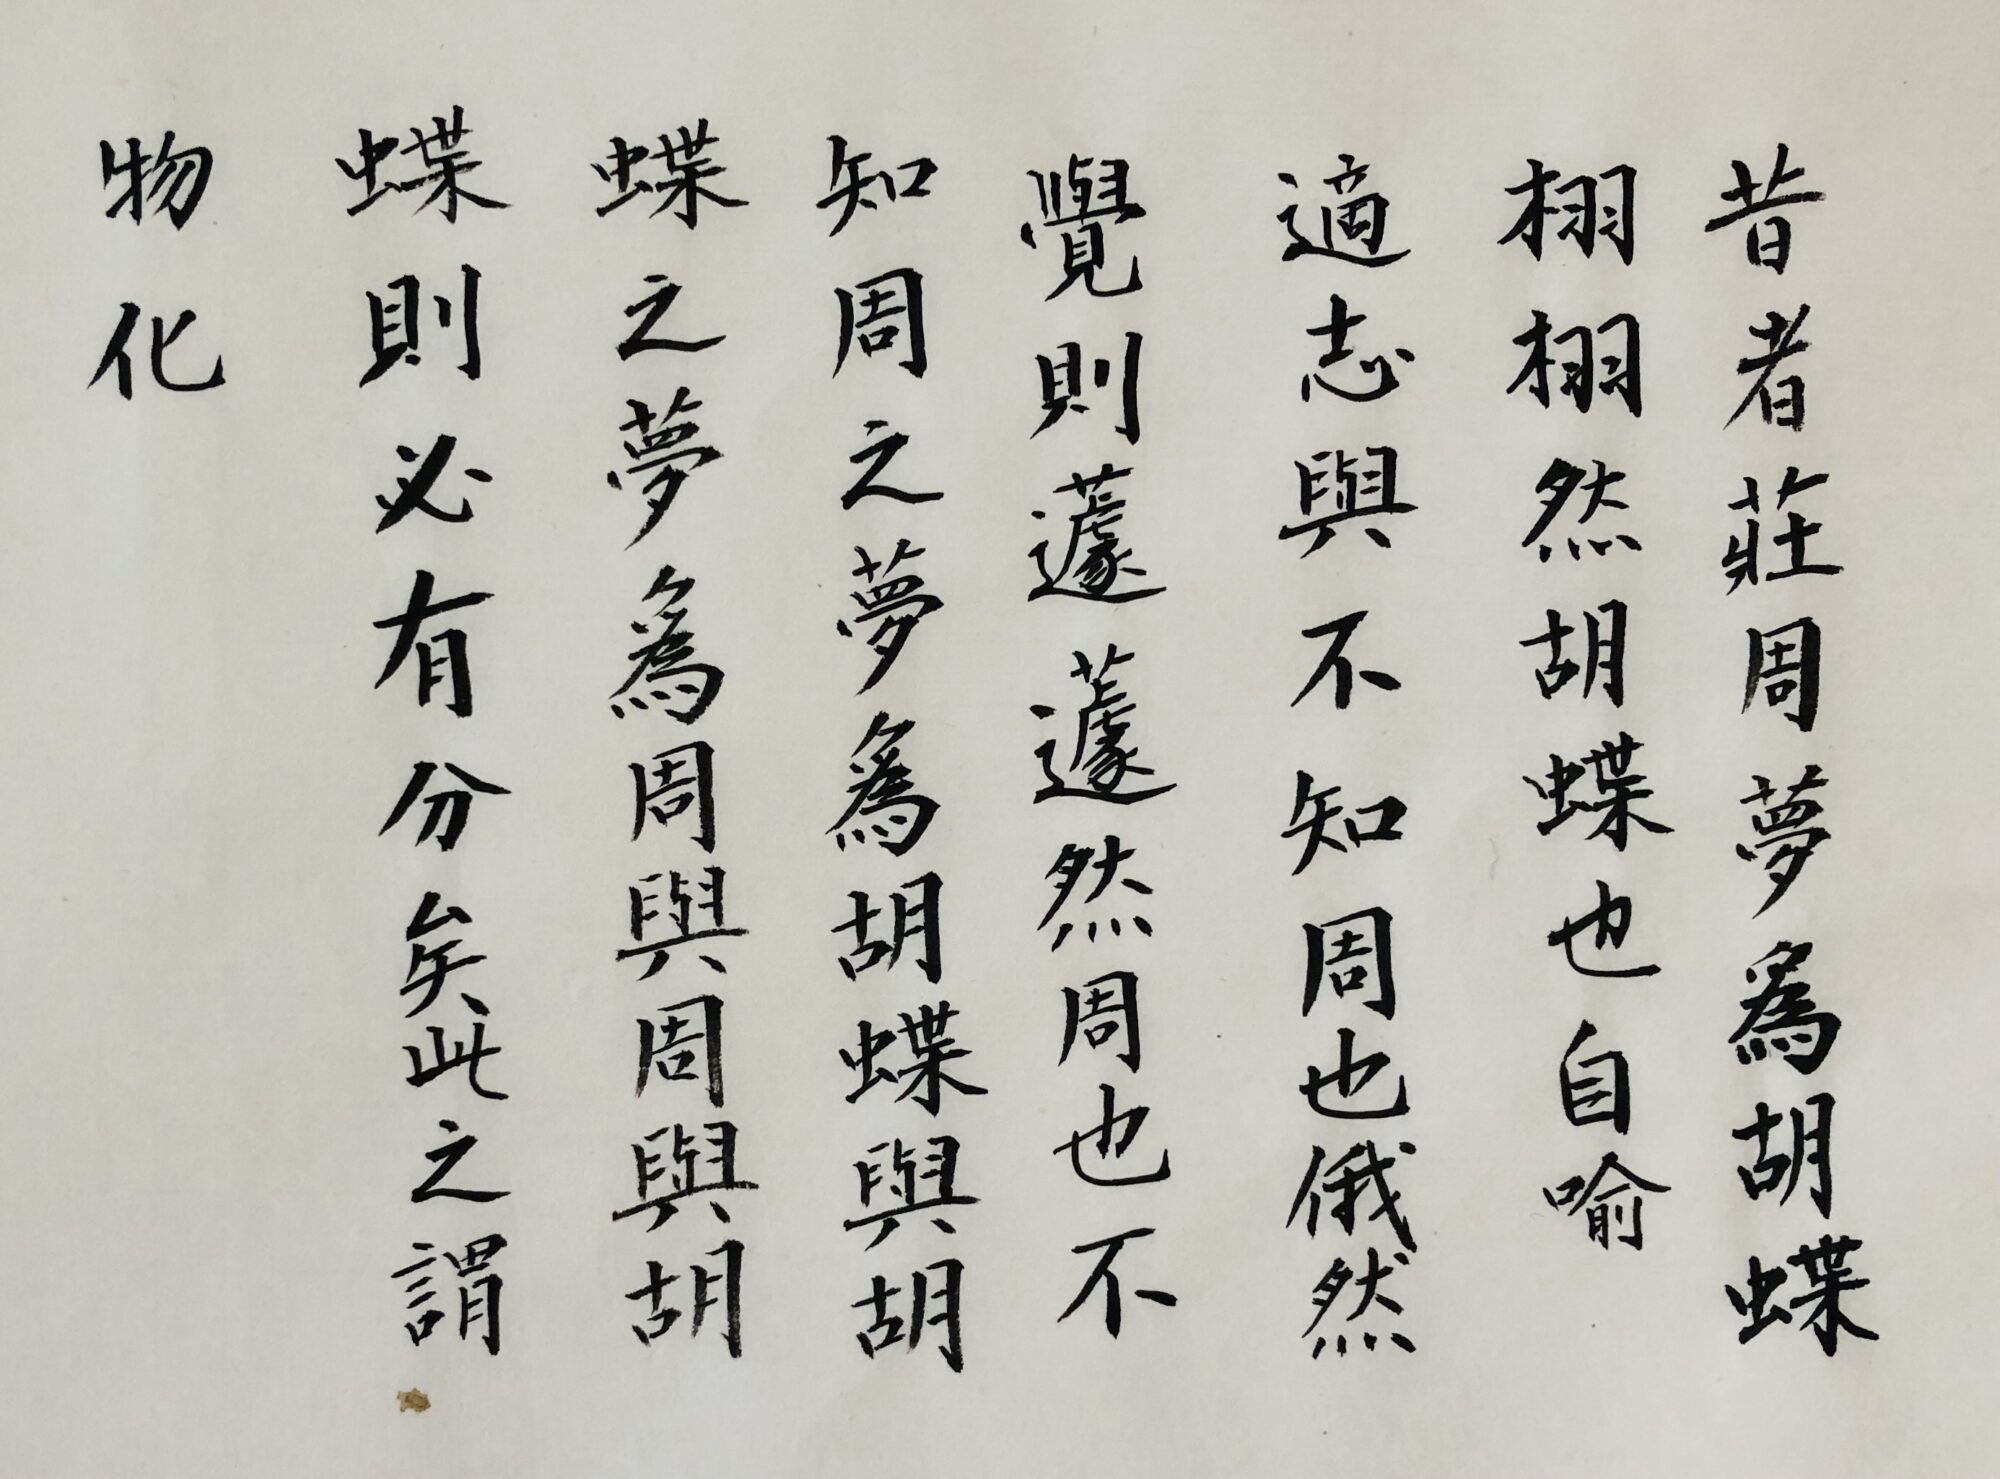 昔者莊周夢為胡蝶
栩栩然胡蝶也自喻
適志與不知周也俄然
覺則蘧蘧然周也不
知周之夢為胡蝶與胡
蝶之夢為周與周與胡
蝶則必有分矣此之謂
物化